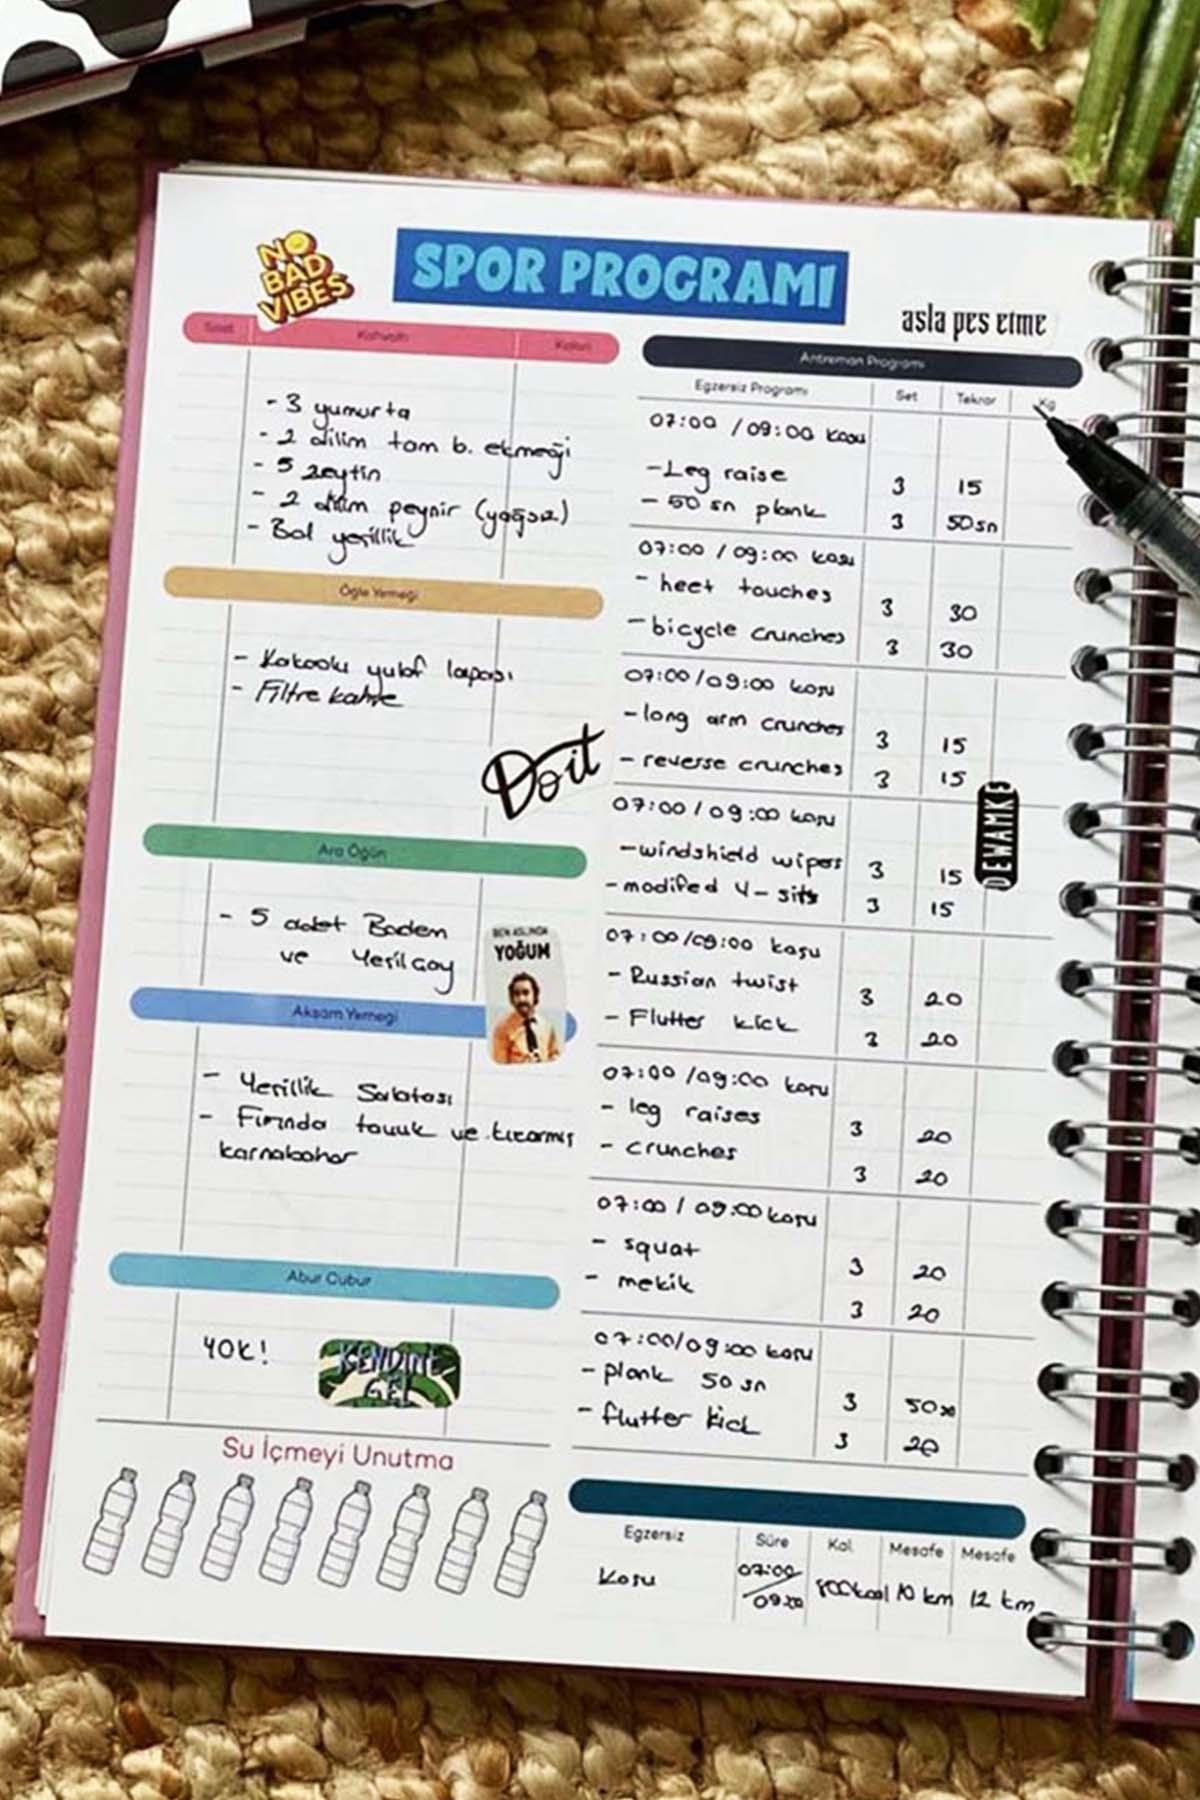 NO
BAD
VIBES
SPOR PROGRAMI
asla pes etme
Saat Kahvaltı Kalori
- 3 yumurta
- 2 dilim tam b. ekmeği
- 5 zeytin
- 2 dilim peynir (yağsız)
- Bol yeşillik
Öğle Yemeği
- Kakaolu yulaf lapası
- Filtre kahve
Do it
Ara Öğün
- 5 adet Badem
ve Yeşilçay
BEN ASLINDA
YOĞUM
Akşam Yemeği
- Yeşillik Salatası
- Fırında tavuk ve kızarmış
karnabahar
Abur Cubur
YOK!
KENDİNE
GEL
Su İçmeyi Unutma
Antreman Programı
Egzersiz Programı Set Tekrar Kg
07:00 / 09:00 koşu
- Leg raise 3 15
- 50 sn plank 3 50sn
07:00 / 09:00 koşu
- heet touches 3 30
- bicycle crunches 3 30
07:00/09:00 koşu
- long arm crunches 3 15
- reverse crunches 3 15
07:00/09:00 koşu
- windshield wipers 3 15
- modifed V-sits 3 15
DEWAMKE
07:00/09:00 koşu
- Russian twist 3 20
- Flutter kick 3 20
07:00/09:00 koşu
- leg raises 3 20
- crunches 3 20
07:00 / 09:00 koşu
- squat 3 20
- mekik 3 20
07:00/09:00 koşu
- plank 50 sn 3 50sn
- flutter kick 3 20
Egzersiz Süre Kal Mesafe Mesafe
Koşu 07:00/09:00 800kcal 10 km 12 km